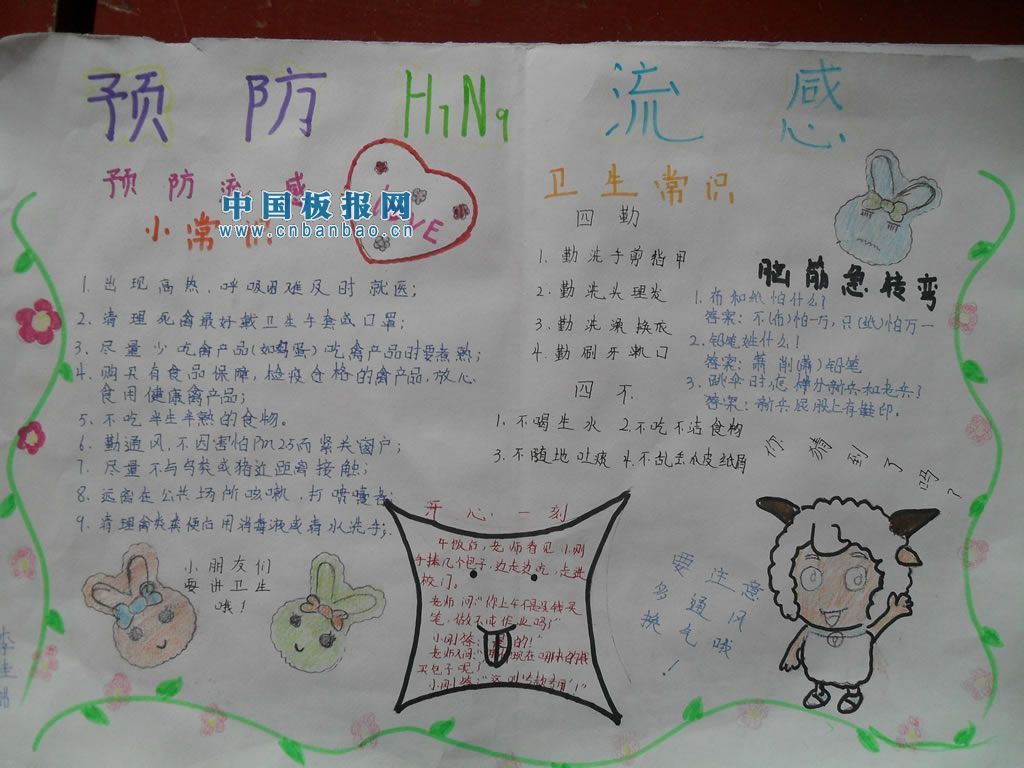 预防 H1N9 流感
预防流感
小常识
中国板报网
www.cnbanbao.cn
LOVE
1. 出现高热、呼吸困难及时就医；
2. 清理死禽最好戴卫生手套或口罩；
3. 尽量少吃禽产品(如鸡蛋)吃禽产品时要煮熟；
4. 购买有食品保障，检疫合格的禽产品，放心
食用健康禽产品；
5. 不吃半生半熟的食物。
6. 勤通风，不因害怕Pm 25而紧关窗户；
7. 尽量不与鸟类或猪近距离接触；
8. 远离在公共场所咳嗽，打喷嚏者；
9. 清理禽类粪便后用消毒液或清水洗手；
小朋友们
要讲卫生
哦！
卫生常识
四勤
1. 勤洗手剪指甲
2. 勤洗头理发
3. 勤洗澡换衣
4. 勤刷牙漱口
四不
1. 不喝生水 2不吃不洁食物
3. 不随地吐痰 4. 不乱丢瓜皮纸屑
脑筋急转弯
1. 布和纸怕什么？
答案：不(布)怕一万，只(纸)怕万一
2. 铅笔姓什么！
答案：萧 削(萧)铅笔
3. 跳伞时，怎样分新兵和老兵？
答案：新兵屁股上有鞋印。
你猜到了吗？
开心一刻
午饭后，老师看见小刚
手捧几个包子，边走边吃，走进
校门。
老师问："你上午不是没钱买
笔，做不成作业吗？"
小刚答："是的！"
买包子呢？
要注意
多通风
换气哦！